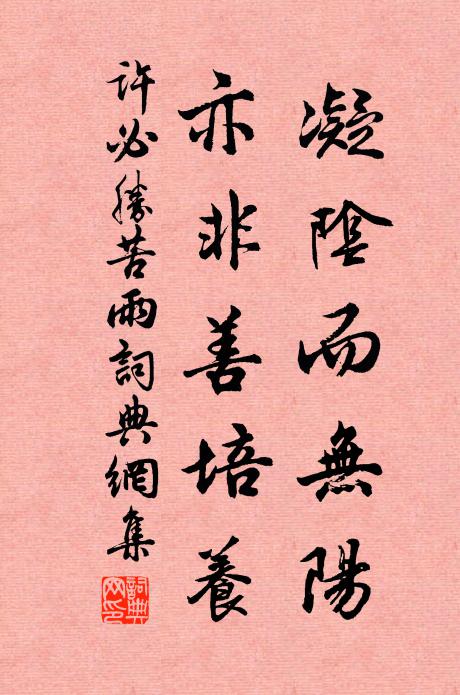 凝陰而無陽
亦非善培養
許必勝苦雨詞典網集
詞典網印